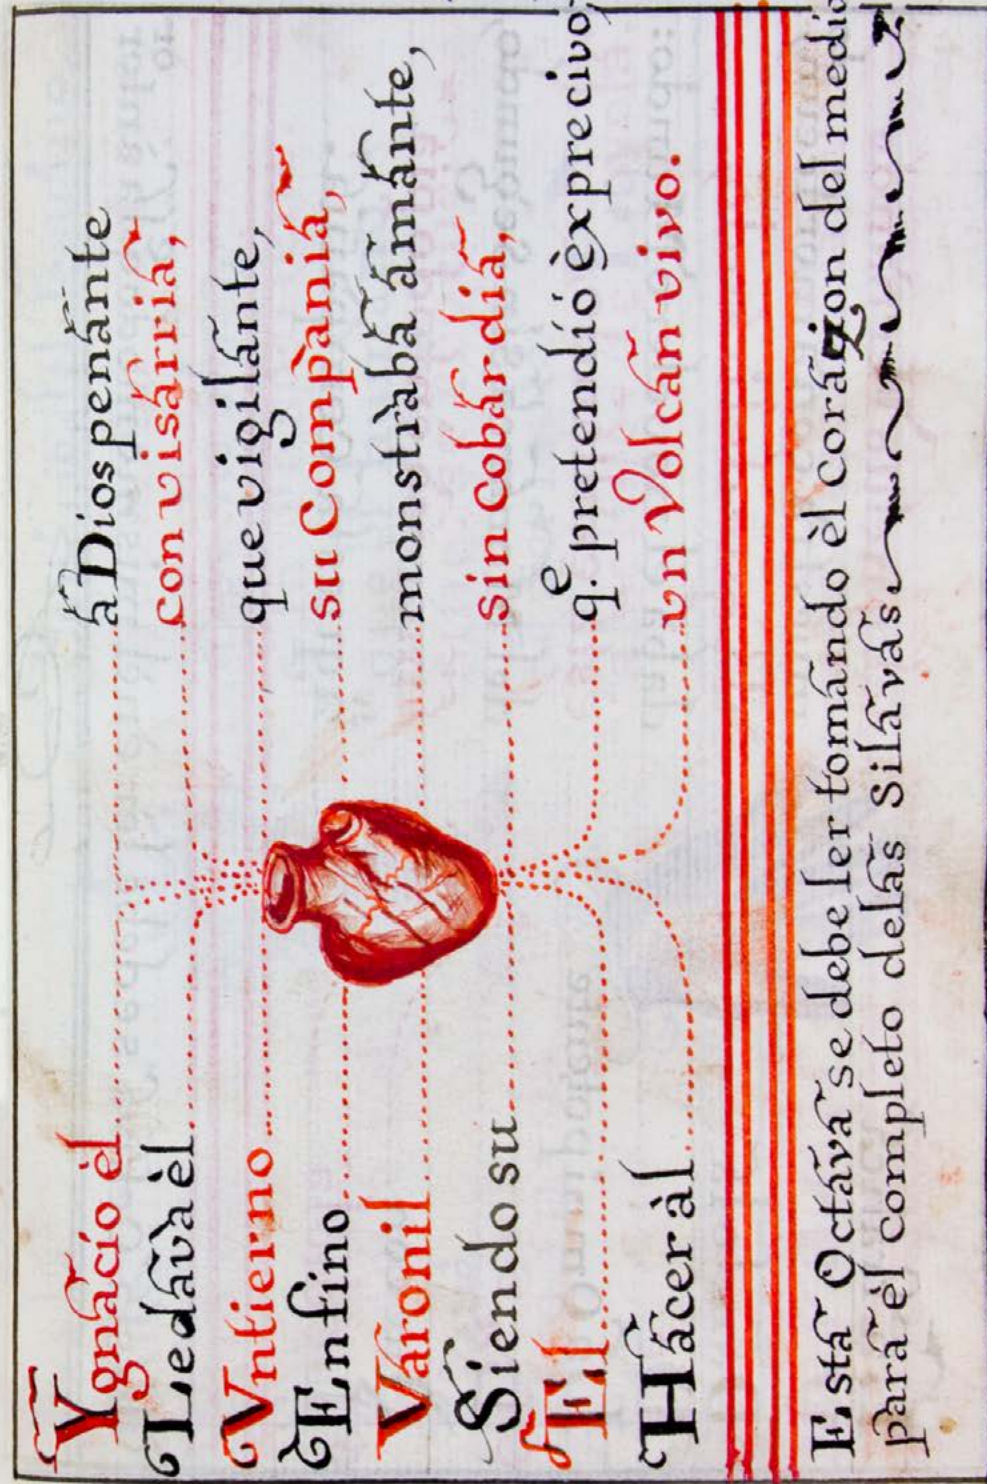 Ygnacio èl a Dios penante
Le dava èl con visarria,
Vn tierno que vigilante,
En fino su Compània,
Varonil monstraba amante,
Siendo su sin cobardia,
El q.e pretendió èxprecivo,
Hacer àl vn Volcan vivo.
Esta Octava se debe ler tomando èl corazon del medio
para èl completo delas Silavas